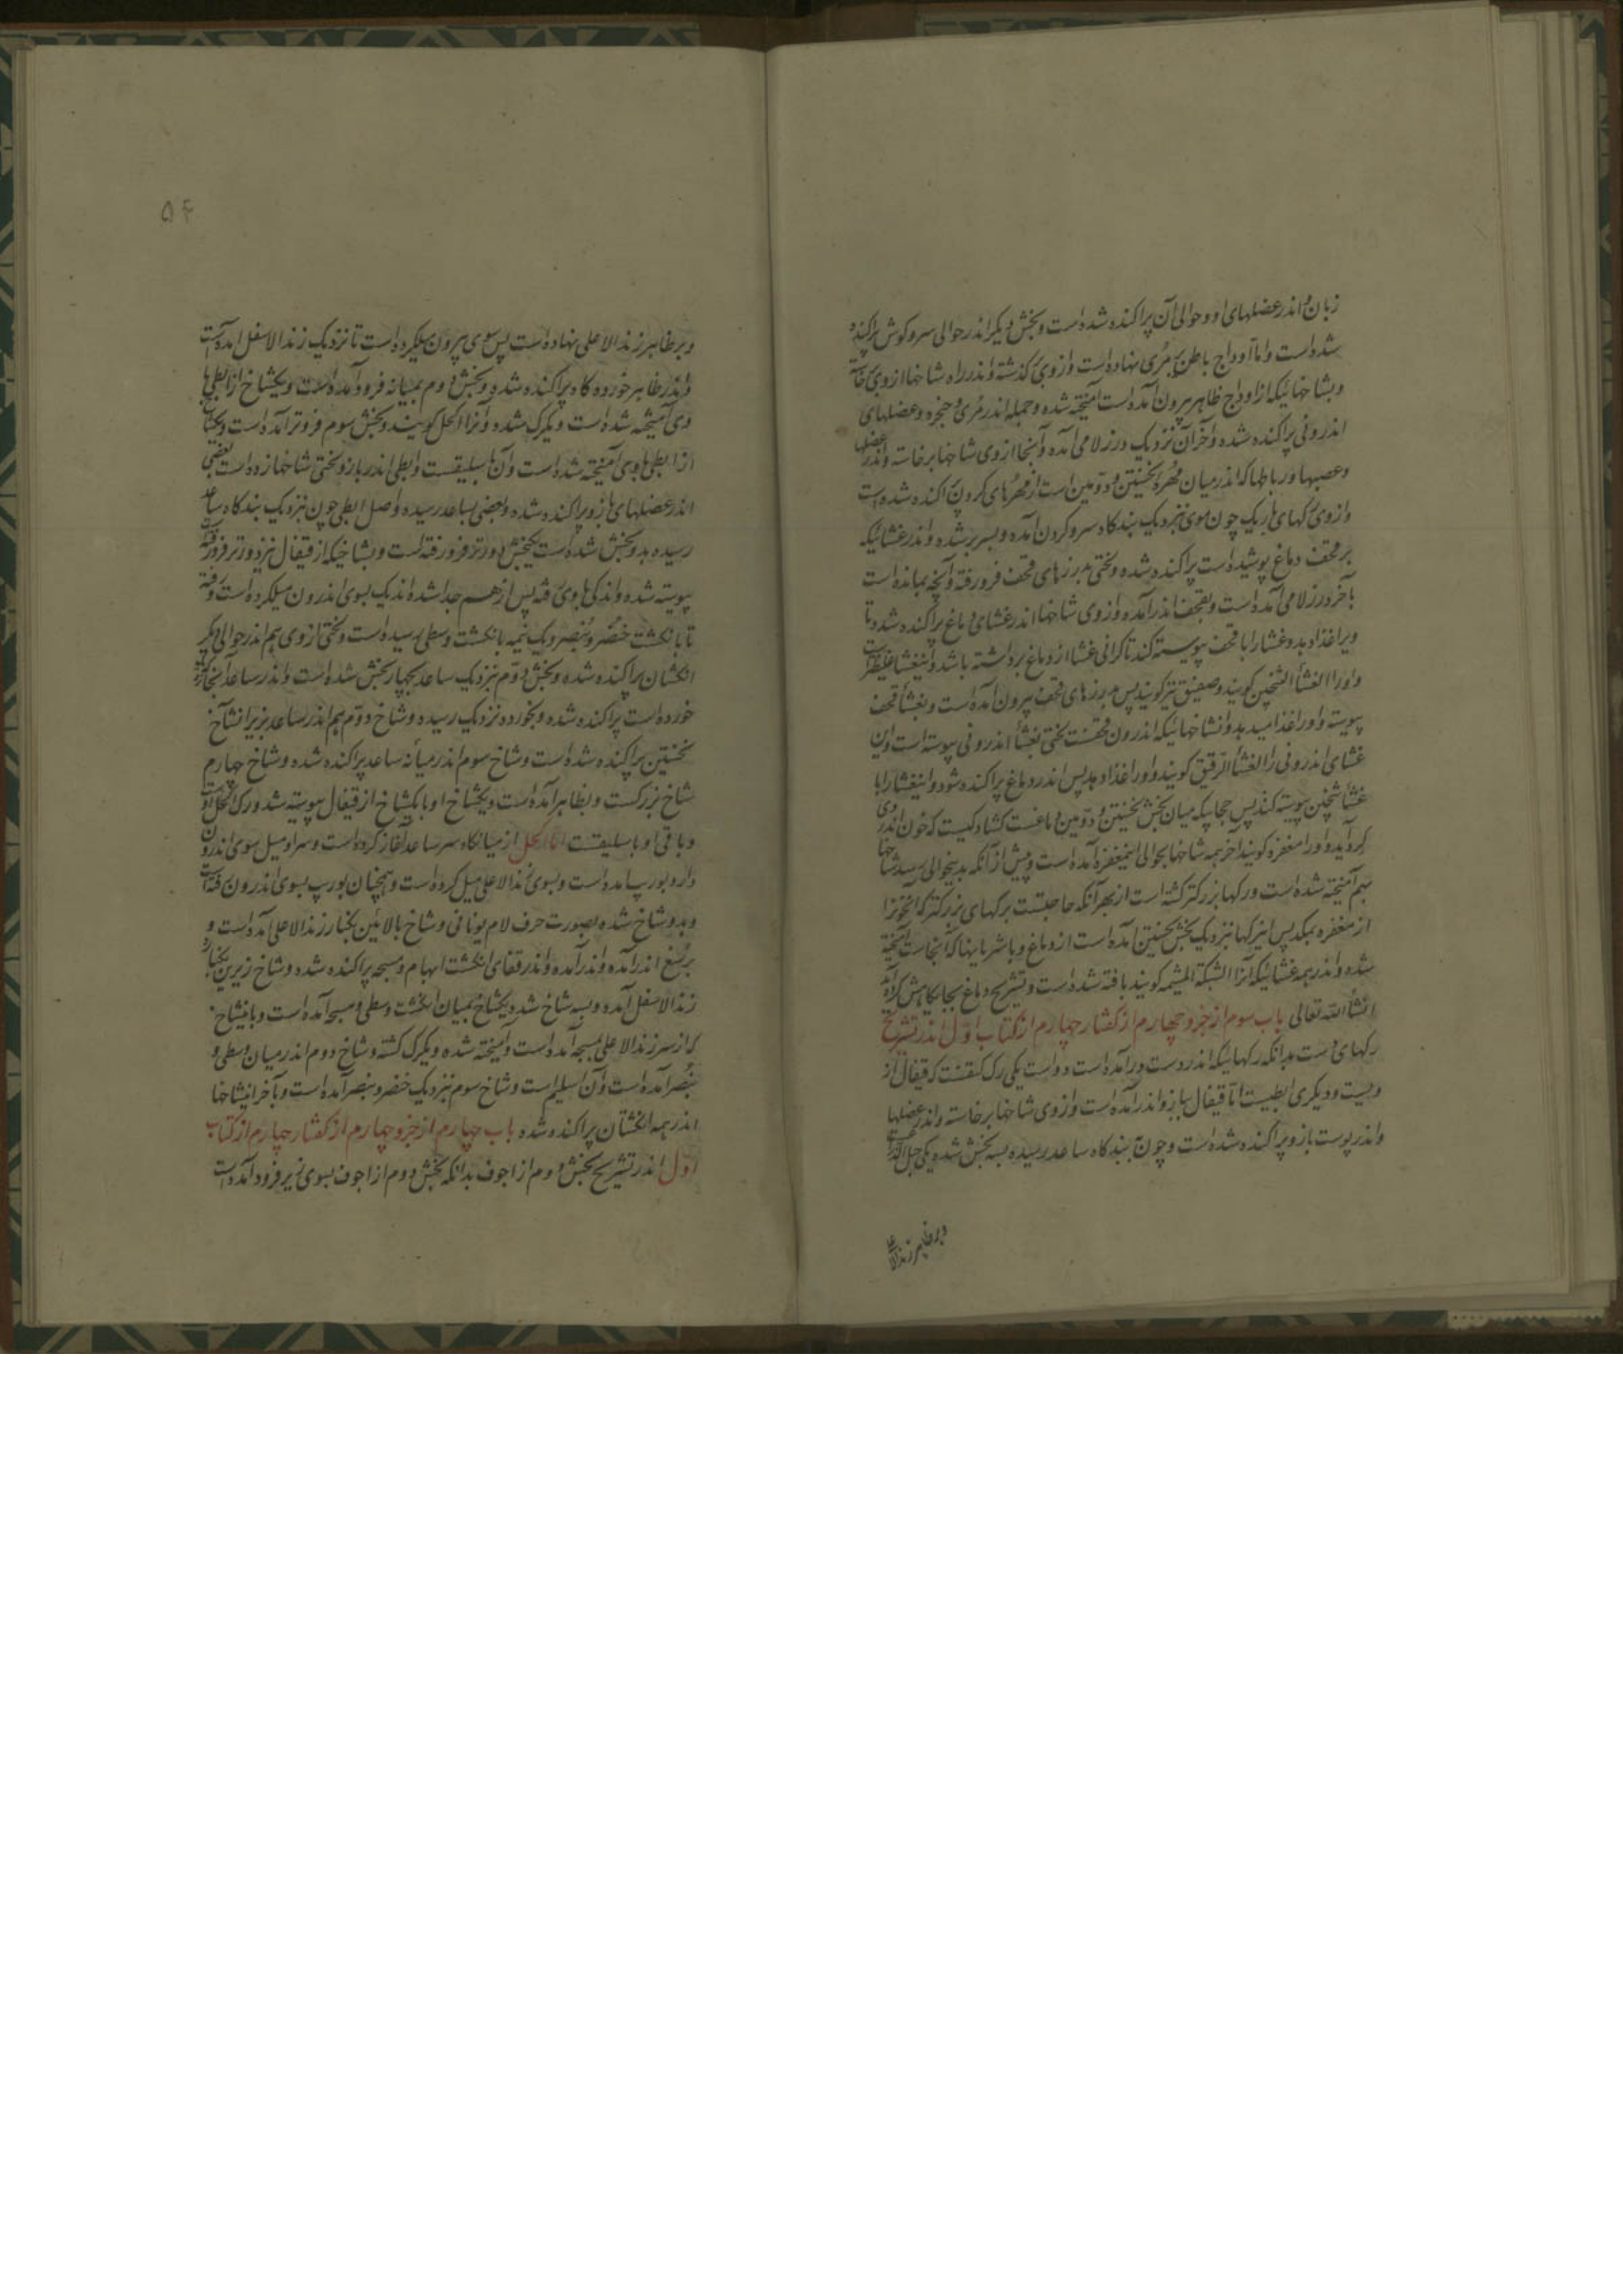 زبان و اندر عضلهای او و حوالی آن پراکنده شده است و بخش دیگر اندر حوالی سر و گوش پراکنده
شده است و اما اوداج باطن بر مُری نهاده است و از وی گذشته و اندر راه شاخها از وی خاسته
و بشاخهائیکه از اوداج ظاهر بیرون آمده است آمیخته شده و جمله اندر مُری و حنجره و عضلهای
اندرونی پراکنده شده و آخر آن نزدیک درز لامی آمده و آنجا از وی شاخها برخاسته و اندر عضلها
و عصبها و رباطها که اندر میان مُهرهٔ نخستین و دوّمین است از مهرهای گردن پراکنده شده است
و از وی رگهای باریک چون موی نزدیک بندگاه سر و گردن آمده و بسر بر شده و اندر غشائیکه
بر قحف دماغ پوشیده است پراکنده شده و لختی بدرزهای قحف فرو رفته و آنچه بمانده است
بآخر درز لامی آمده است و بقحف اندر آمده و از وی شاخها اندر غشای دماغ پراکنده شده تا
ویرا غذا دهد و غشا را با قحف پیوسته کند تا گرانی غشا از دماغ برداشته باشد و این غشا غلیظتر است
و او را الغشأ الثخین گویند و صفیق نیز گویند پس بدرزهای قحف بیرون آمده است و بغشأ قحف
پیوسته و او را غذا میدهد و آن شاخهائیکه اندرون قحفست لختی بغشأ اندرونی پیوسته است و این
غشای اندرونی را الغشأ الرّقیق گویند و او را غذا دهد پس اندر دماغ پراکنده شود و این غشا را با
غشأ ثخین پیوسته کند پس جایگه میان بخش نخستین و دوّمین دماغست گشادگیست که خون اندر وی
گرد آید و او را معفره گویند آخر همه شاخها بحوالی این معفره آمده است و پیش از آنکه بدین حوالی رسد شاخها
بهم آمیخته شده است و رگها بزرگتر گشته است از بهر آنکه حاجتست برگهای بزرگتر که خونرا
از معفره بمکد پس این رگها نزدیک بخش نخستین آمده است از دماغ و با شریانها که آنجاست آمیخته
شده و اندر همه غشائیکه آنرا الشبکة المشیمه گویند بافته شده است و تشریح دماغ بجایگاهش کرده آید
انشأ الله تعالی باب سوم از جزو چهارم از گفتار چهارم از کتاب اوّل اندر تشریح
رگهای دست بدانکه رگهائیکه اندر دست در آمده است دو است یکی رگ کتفست که قیفال از
ویست و دیگری ابطیست امّا قیفال ببازو اندر آمده است و از وی شاخها برخاسته و اندر عضلها
و اندر پوست بازو پراکنده شده است و چون ببندگاه ساعد رسیده بسه بخش شده یکی حبل الذراعست
و بر ظاهر زند الا
۵۴
و بر ظاهر زند الاعلی نهاده است پس سوی بیرون میل کرده است تا نزدیک زند الاسفل آمده است
و اندر ظاهر خورده گاه پراکنده شده و بخش دوم بمیانه فرود آمده است و یکشاخ از ابطی با
وی آمیخته شده است و یکرگ شده و آنرا اکحل گویند و بخش سوم فروتر آمده است و یکشاخ
از ابطی با وی آمیخته شده است و آن باسلیقست و ابطی اندر بازو لختی شاخها زده است بعضی
اندر عضلهای بازو پراکنده شده و بعضی بساعد رسیده و اصل ابطی چون نزدیک بندگاه ساعد
رسیده بدو بخش شده است یکبخش دورتر فرو رفته است و بشاخیکه از قیفال نیز دورتر فرو رفته
پیوسته شده و اندکی با وی رفته پس از هم جدا شده اند یک بسوی اندرون میل کرده است و رفته
تا بانگشت خنصر و بنصر و یک نیمه بانگشت وسطی رسیده است و لختی از وی هم اندر حوالی دیگر
انگشتان پراکنده شده و بخش دوّم نزدیک ساعد بچهار بخش شده است و اندر ساعد آنجا که
خورده است پراکنده شده و بخورده نزدیک رسیده و شاخ دوّم هم اندر ساعد بزیر آن شاخ
نخستین پراکنده شده است و شاخ سوم اندر میانه ساعد پراکنده شده و شاخ چهارم
شاخ بزرگست و بظاهر آمده است و یکشاخ او با یکشاخ از قیفال پیوسته شد و رگ اکحل اوست
و باقی او باسلیقست امّا اکحل از میانگاه سر ساعد آغاز کرده است و سر او میل سوی اندرون
دارد بورب آمده است و بسوی زند الاعلی میل کرده است و همچنان بورب بسوی اندرون رفته است
و بدو شاخ شده بصورت حرف لام یونانی و شاخ بالائین بکنار زند الاعلی آمده است و
برسغ اندر آمده و اندر قفای انگشت ابهام و مسبحه پراکنده شده و شاخ زیرین بکناره
زند الاسفل آمده و بسه شاخ شده یکشاخ بمیان انگشت وسطی و مسبحه آمده است و باین شاخ
که از سر زند الاعلی بمسبحه آمده است و آمیخته شده و یکرگ گشته و شاخ دوم اندر میان وسطی و
بنصر آمده است و آن اسیلم است و شاخ سوم نزدیک خنصر و بنصر آمده است و بآخر این شاخها
اندر همه انگشتان پراکنده شده باب چهارم از جزو چهارم از گفتار چهارم از کتاب
اوّل اندر تشریح بخش دوم از اجوف بدانکه بخش دوم از اجوف بسوی زیر فرود آمده است